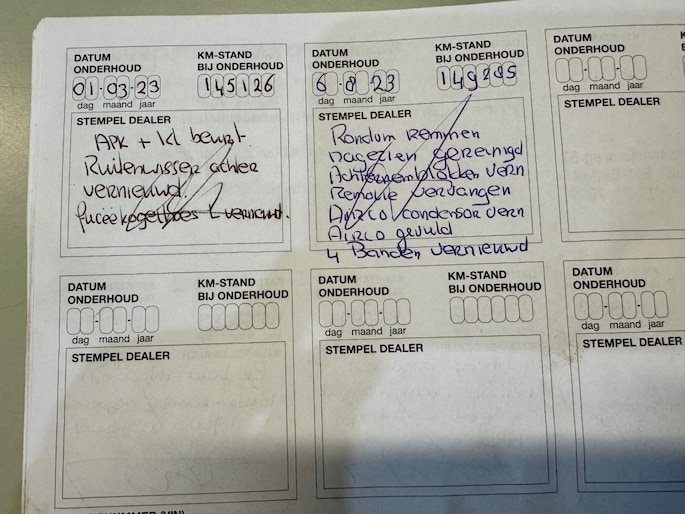 DATUM ONDERHOUD
KM-STAND BIJ ONDERHOUD
01-03-23
145126
dag maand jaar
STEMPEL DEALER
APK + kl beurt.
Ruitenwisser achter
vernieuwd.
L vernieuwd.
DATUM ONDERHOUD
KM-STAND BIJ ONDERHOUD
6-8-23
dag maand jaar
STEMPEL DEALER
Rondum Remmen
nagezien gereinigd
Achterremblokken vern
Remolie vervangen
Airco condensor vern
Airco gevuld
4 Banden vernieuwd
DATUM
ONDERHOUD
dag maand jaar
STEMPEL DEALER
DATUM
ONDERHOUD
KM-STAND
BIJ ONDERHOUD
dag maand jaar
STEMPEL DEALER
DATUM
ONDERHOUD
KM-STAND
BIJ ONDERHOUD
dag maand jaar
STEMPEL DEALER
DATUM
ONDERHOUD
dag maand jaar
STEMPEL DEALER